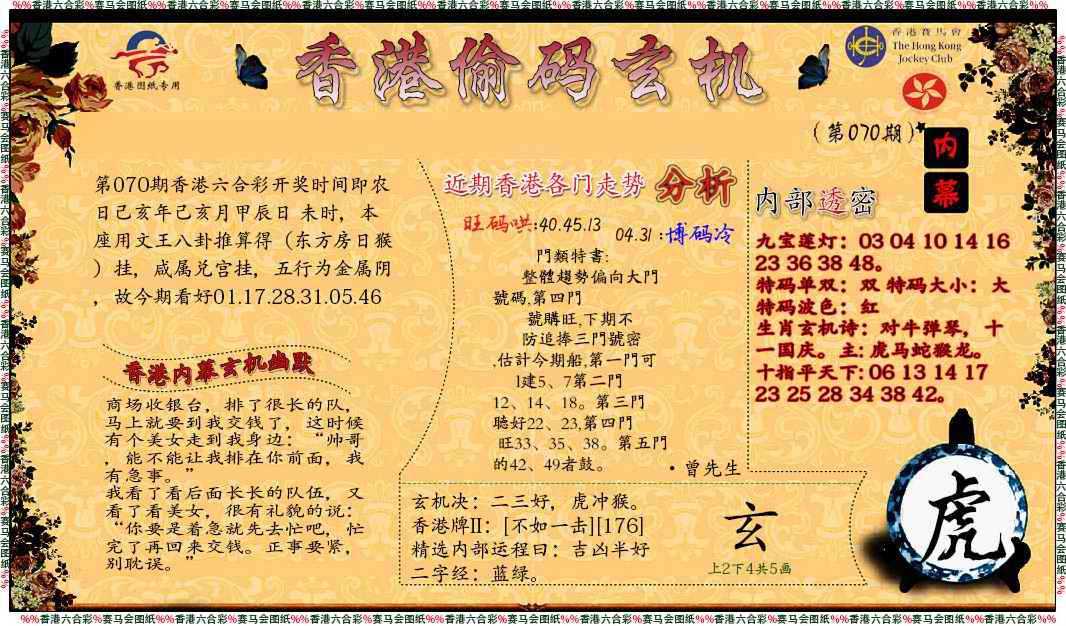 %%香港六合彩%赛马会图纸%%香港六合彩%赛马会图纸%%香港六合彩%赛马会图纸%%香港六合彩%赛马会图纸%%香港六合彩%赛马会图纸%%香港六合彩%赛马会图纸%%香港六合彩%%
香港图纸专用
香港偷码玄机
香港賽馬會
The Hong Kong
Jockey Club
(第070期)
内
幕
第070期香港六合彩开奖时间即农
日己亥年己亥月甲辰日 未时，本
座用文王八卦推算得（东方房日猴
）挂，咸属兑宫挂，五行为金属阴
，故今期看好01.17.28.31.05.46
香港内幕玄机幽默
商场收银台，排了很长的队，
马上就要到我交钱了，这时候
有个美女走到我身边：“帅哥
，能不能让我排在你前面，我
有急事。”
我看了看后面长长的队伍，又
看了看美女，很有礼貌的说：
“你要是着急就先去忙吧，忙
完了再回来交钱。正事要紧，
别耽误。”
近期香港各门走势 分析
旺码哄:40.45.13
04.31 :博码冷
門類特書:
整體趨勢偏向大門
號碼,第四門
號購旺,下期不
防追捧三門號密
,估計今期船,第一門可
1建5、7第二門
12、14、18。第三門
聽好22、23,第四門
旺33、35、38。第五門
的42、49者鼓。
·曾先生
玄机决：二三好，虎冲猴。
香港牌II：[不如一击][176]
精选内部运程曰：吉凶半好
二字经：蓝绿。
玄
上2下4共5画
内部透密
九宝莲灯：03 04 10 14 16
23 36 38 48。
特码单双：双 特码大小：大
特码波色：红
生肖玄机诗：对牛弹琴，十
一国庆。主: 虎马蛇猴龙。
十指平天下: 06 13 14 17
23 25 28 34 38 42。
虎
%%香港六合彩%赛马会图纸%%香港六合彩%赛马会图纸%%香港六合彩%赛马会图纸%%香港六合彩%赛马会图纸%%香港六合彩%赛马会图纸%%香港六合彩%赛马会图纸%%香港六合彩%%